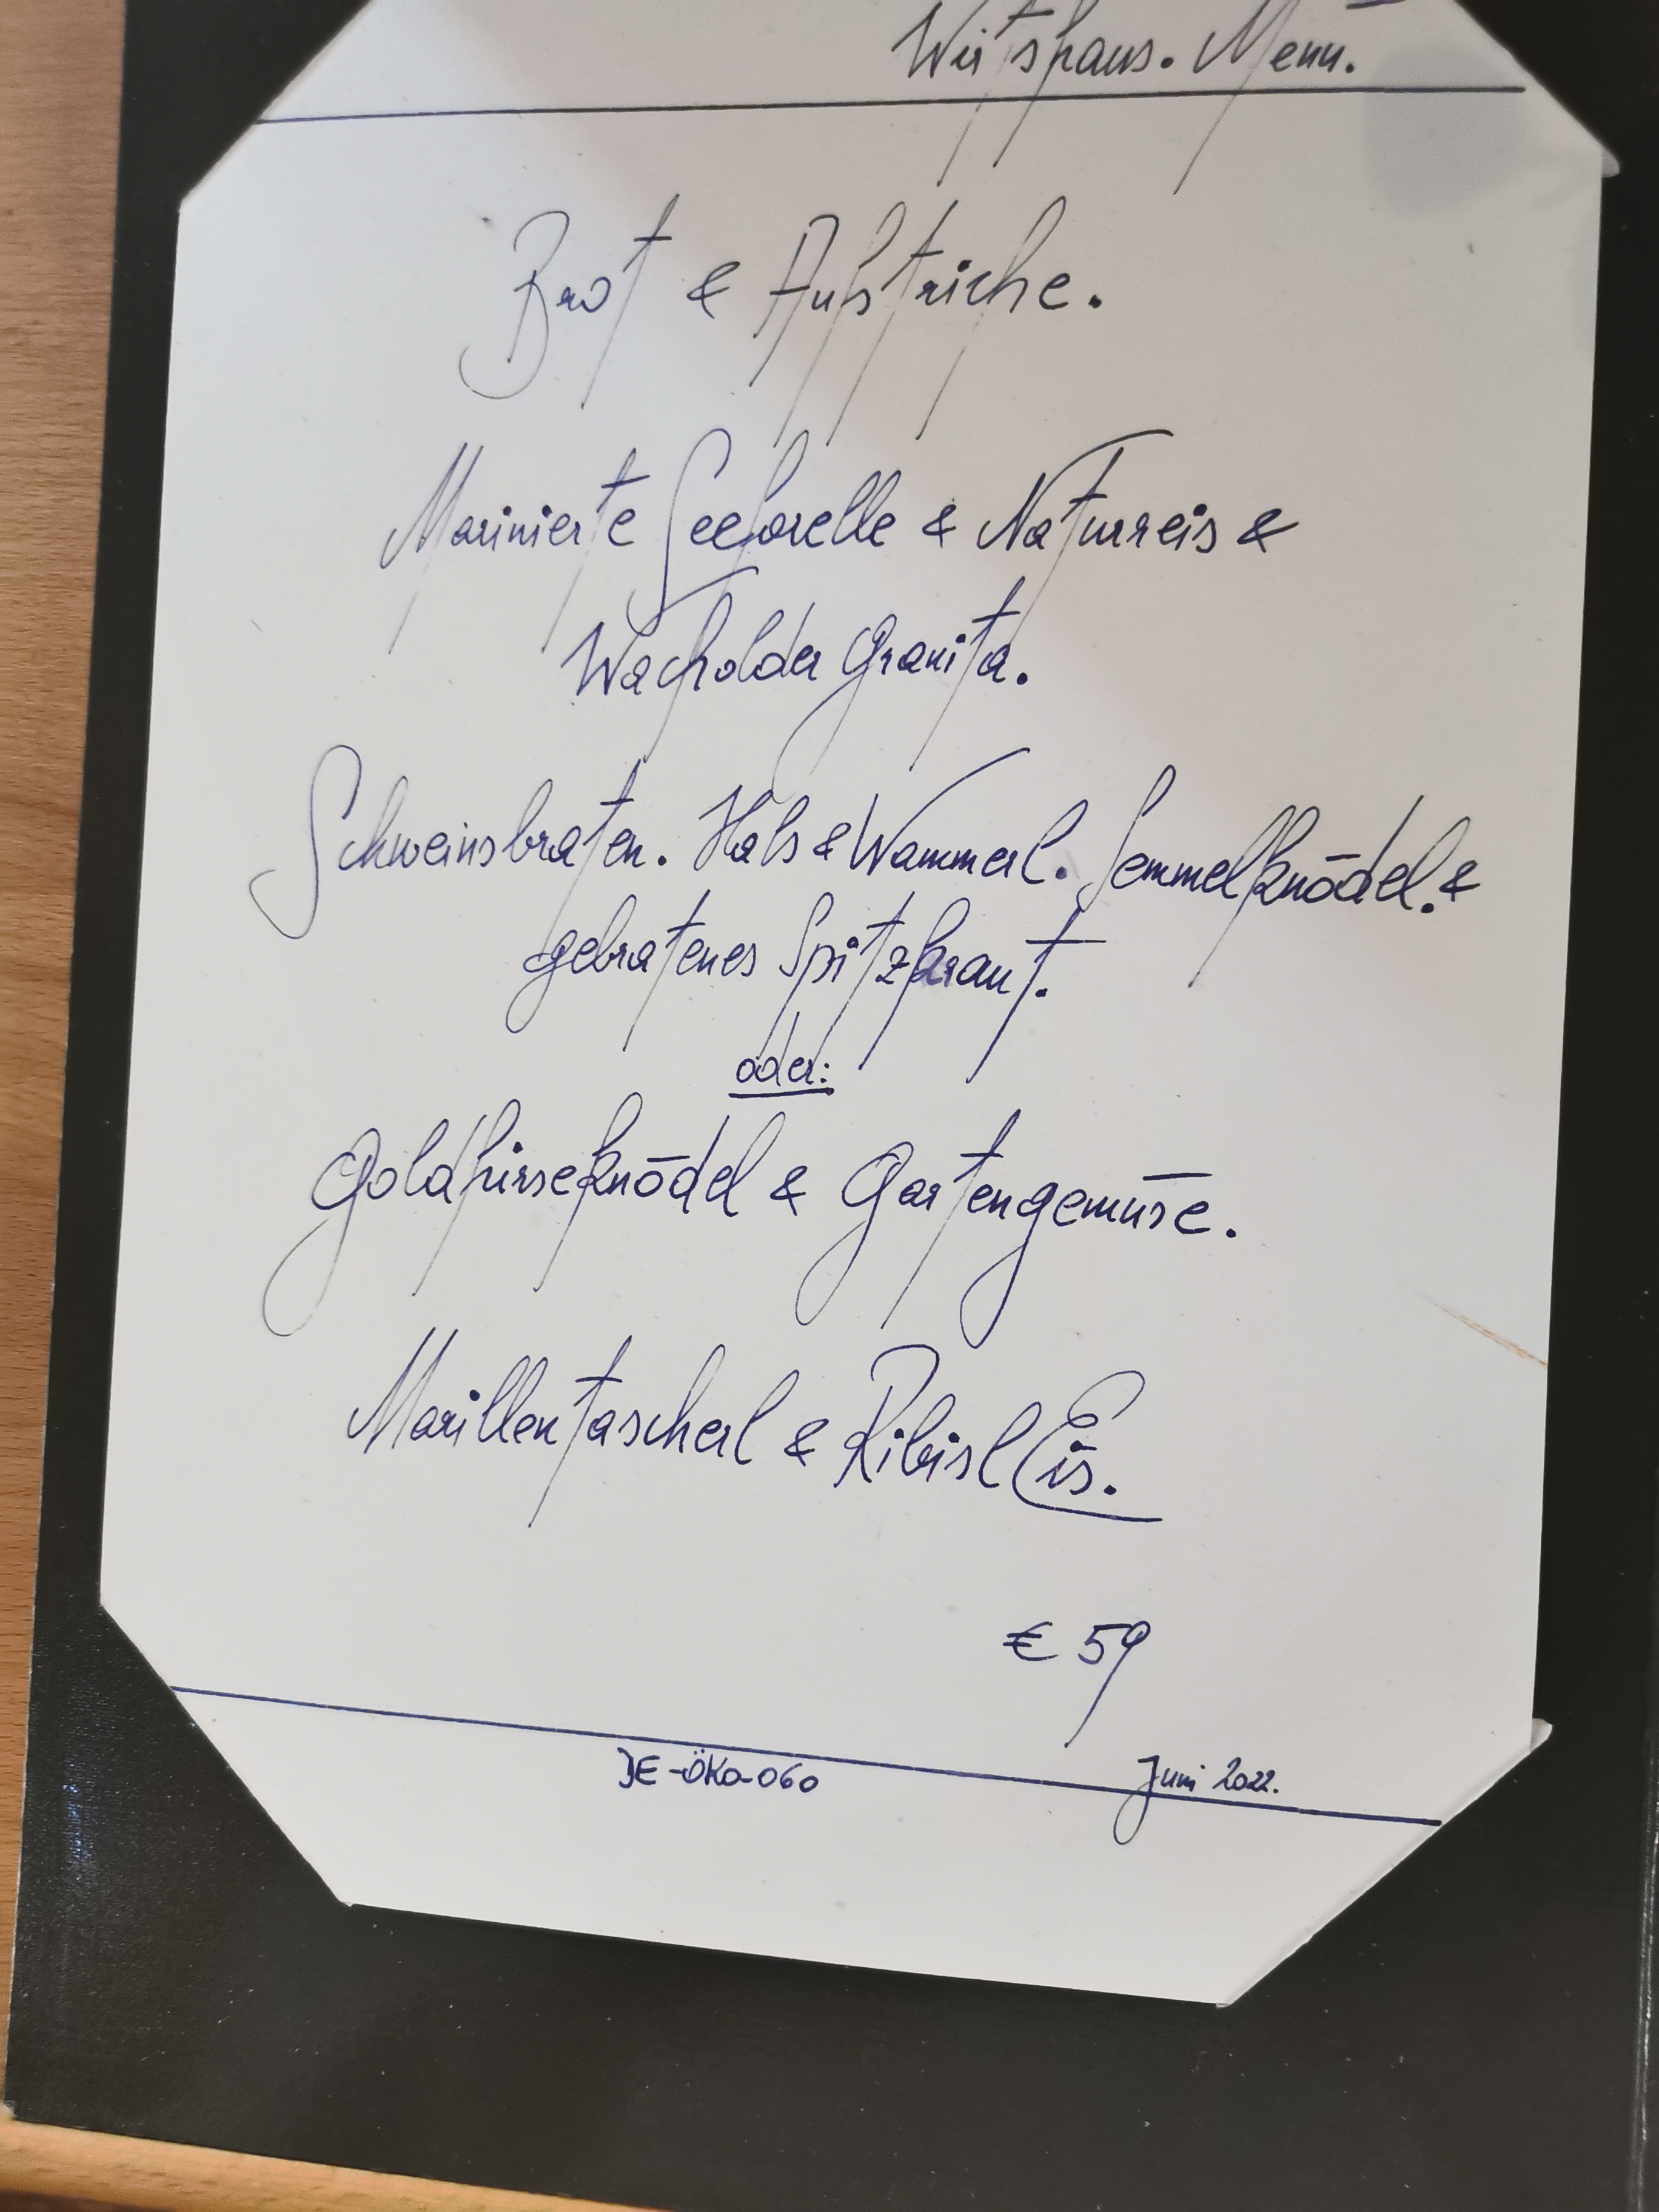 Wirtshaus. Menü.
Brot & Aufstriche.
Marinierte Seeforelle & Naturreis &
Wacholder Granita.
Schweinsbraten. Hals & Wammerl. Semmelknödel. &
gebratenes Spitzkraut.
oder:
Goldhirseknödel & Gartengemüse.
Marillentascherl & Ribisl Eis.
€ 59
DE-ÖKO-060
Juni 2022.